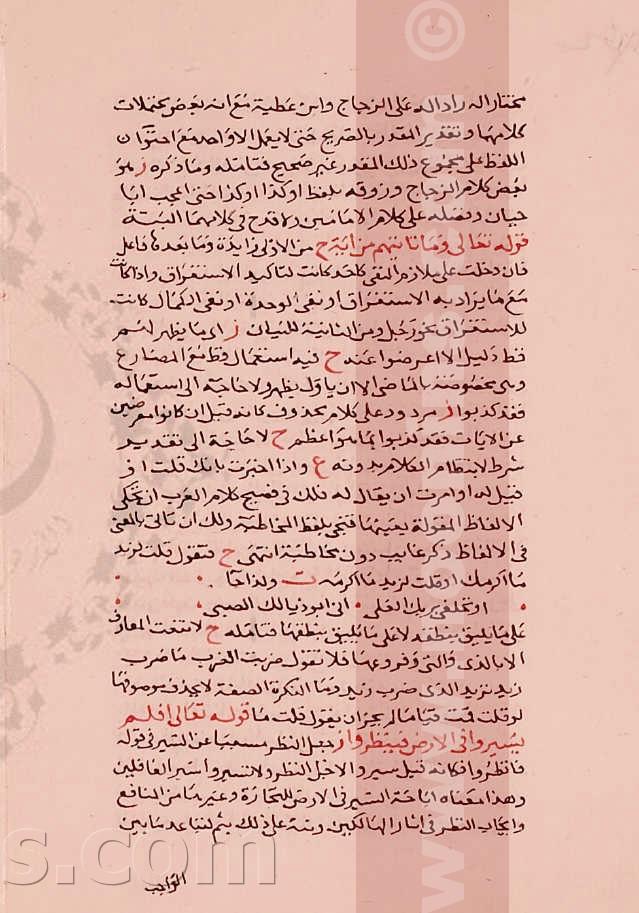 مختار اله راد اله على الزجاج وابن عطية مع انه بعض محتملات
كلامهما وتقدير المقدر بالصريح حتى لا يعمل الاواحد مع احتوآن
اللفظ على مجموع ذلك المقدر غير صحيح فتامله وما ذكره ز هو
بعض كلام الزجاج وزوقه بلفظ اوكذا اوكذا حتى اعجب ابا
حيان ونقله على كلام الامامين ولا قدح في كلامهما البتة
قوله تعالى وما تاتيهم من اية ح من الاولى زايدة وما بعدها فاعل
فان دخلت على ملازم النفي كاحد كانت لتاكيد الاستغراق واذا كانت
مع ما يراد به الاستغراق او نفي الوحدة او نفي الكمال كانت
للاستغراق نحو رجل ومن الثانية للبيان ز اي ما يظهر لهم
قط دليل الا اعرضوا عنه ح فيه استعمال قط مع المضارع
وهي مخصوصة بالماضي الا ان ياول يظهر ولا حاجة الى استعماله
فقد كذبوا ز مردود على كلام محذوف كانه قيل ان كانوا معرضين
عن الايات فقد كذبوا بما هو اعظم ح لا حاجة الى تقدير
شرط لانتظام الكلام بدونه ع واذا اخبرت بانك قلت او
قيل له او امرت ان يقال له فلك في فصيح كلام العرب ان تحكي
الالفاظ المقولة بعينها فتجي بلفظ المخاطبة ولك ان تاتي بالمعنى
في الالفاظ ذكر غايب دون مخاطبة انتهى ح فتقول قلت لزيد
ما اكرمك او قلت لزيد ما اكرمه ت ولذا جا
او تحلفي بربك العلي اني ابو ذيالك الصبي
على ما يليق بنطقه لا على ما يليق بنطقها فتامله ح لا تنعت المعارف
الا بالذي والتي وفروعهما فلا تقول ضربت الضرب ما ضرب
زيد تريد الذي ضرب زيد وما النكرة الصفة لا يحذف موصوفها
لو قلت قمت قياما لم يجز ان يقول قلت ما قوله تعالى افلم
يسيروا في الارض فينظروا ز جعل النظر مسببا عن السير في قوله
فانظروا فكانه قيل سيروا لاجل النظر ولا تسيروا سير الغافلين
وهذا معناه اباحة السير في الارض للتجارة وغيرها من المنافع
وايجاب النظر في اثار الهالكين ونبه على ذلك بثم لتباعد ما بين
الواجب
s.com
©